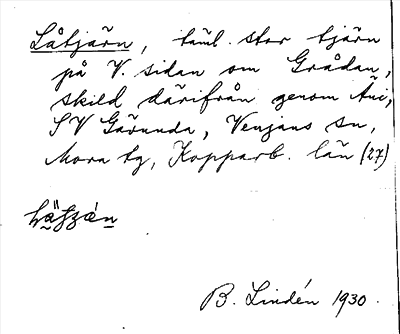 Låtjärn, täml. stor tjärn
på V. sidan om Grådan,
skild därifrån genom
SV Gärunda, Venjans sn,
Mora tg, Kopparb. län (27)
B. Lindén 1930.